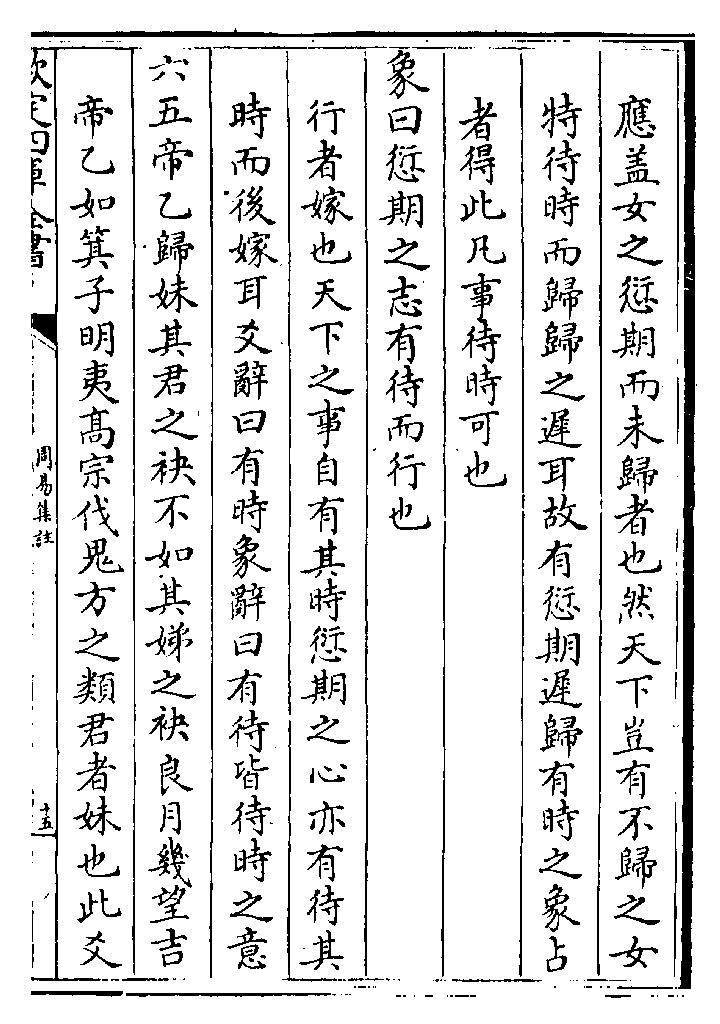 應盖女之愆期而未歸者也然天下豈有不歸之女
特待時而歸歸之遲耳故有愆期遲歸有時之象占
者得此凡事待時可也
象曰愆期之志有待而行也
行者嫁也天下之事自有其時愆期之心亦有待其
時而後嫁耳爻辭曰有時象辭曰有待皆待時之意
六五帝乙歸妹其君之袂不如其娣之袂良月幾望吉
帝乙如箕子明夷髙宗伐鬼方之類君者妹也此爻
欽定四庫全書
周易集註
十五